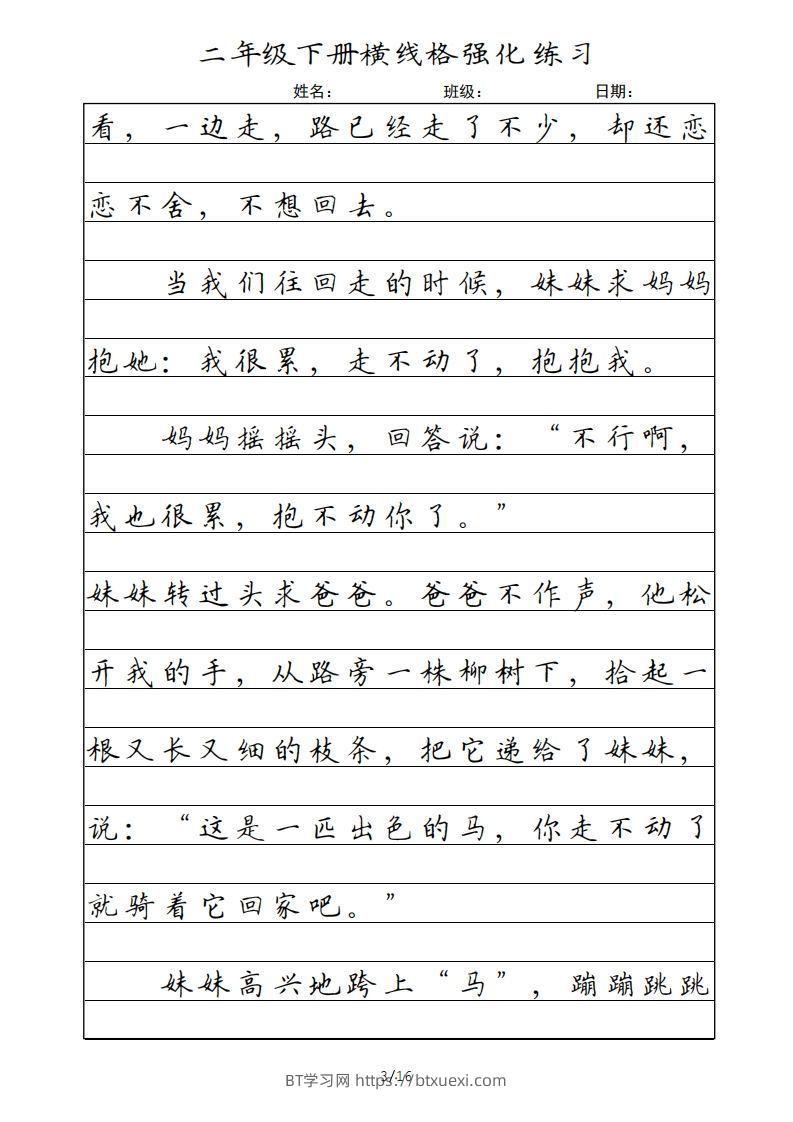 二年级下册横线格强化练习
姓名： 班级： 日期：
看，一边走，路已经走了不少，却还恋
恋不舍，不想回去。
当我们往回走的时候，妹妹求妈妈
抱她：我很累，走不动了，抱抱我。
妈妈摇摇头，回答说：“不行啊，
我也很累，抱不动你了。”
妹妹转过头求爸爸。爸爸不作声，他松
开我的手，从路旁一株柳树下，拾起一
根又长又细的枝条，把它递给了妹妹，
说：“这是一匹出色的马，你走不动了
就骑着它回家吧。”
妹妹高兴地跨上“马”，蹦蹦跳跳
3/16
BT学习网 https://btxuexi.com